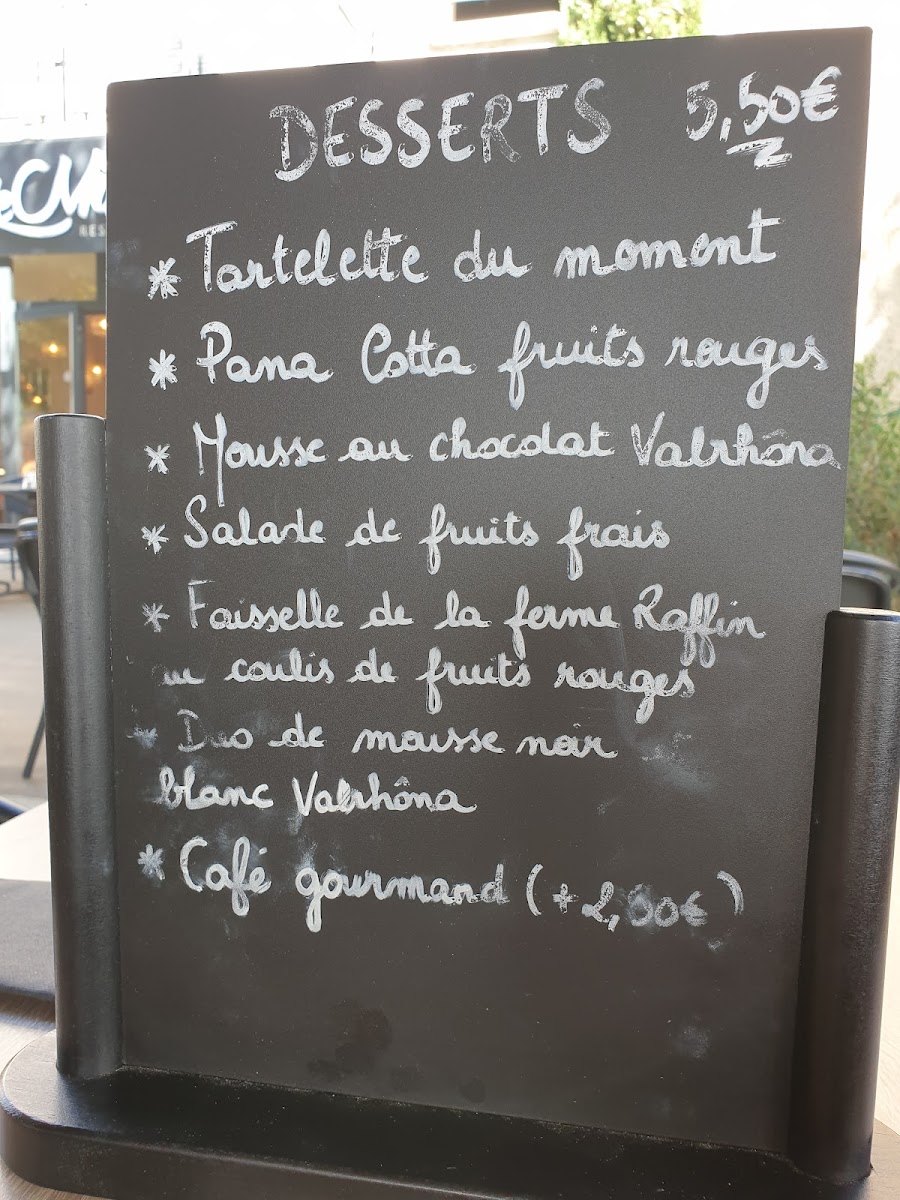 DESSERTS 5,50€
* Tartelette du moment
* Pana Cotta fruits rouges
* Mousse au chocolat Valrhôna
* Salade de fruits frais
* Faisselle de la ferme Raffin
coulis de fruits rouges
* Duo de mousse noir
blanc Valrhôna
* Café gourmand (+2,00€)